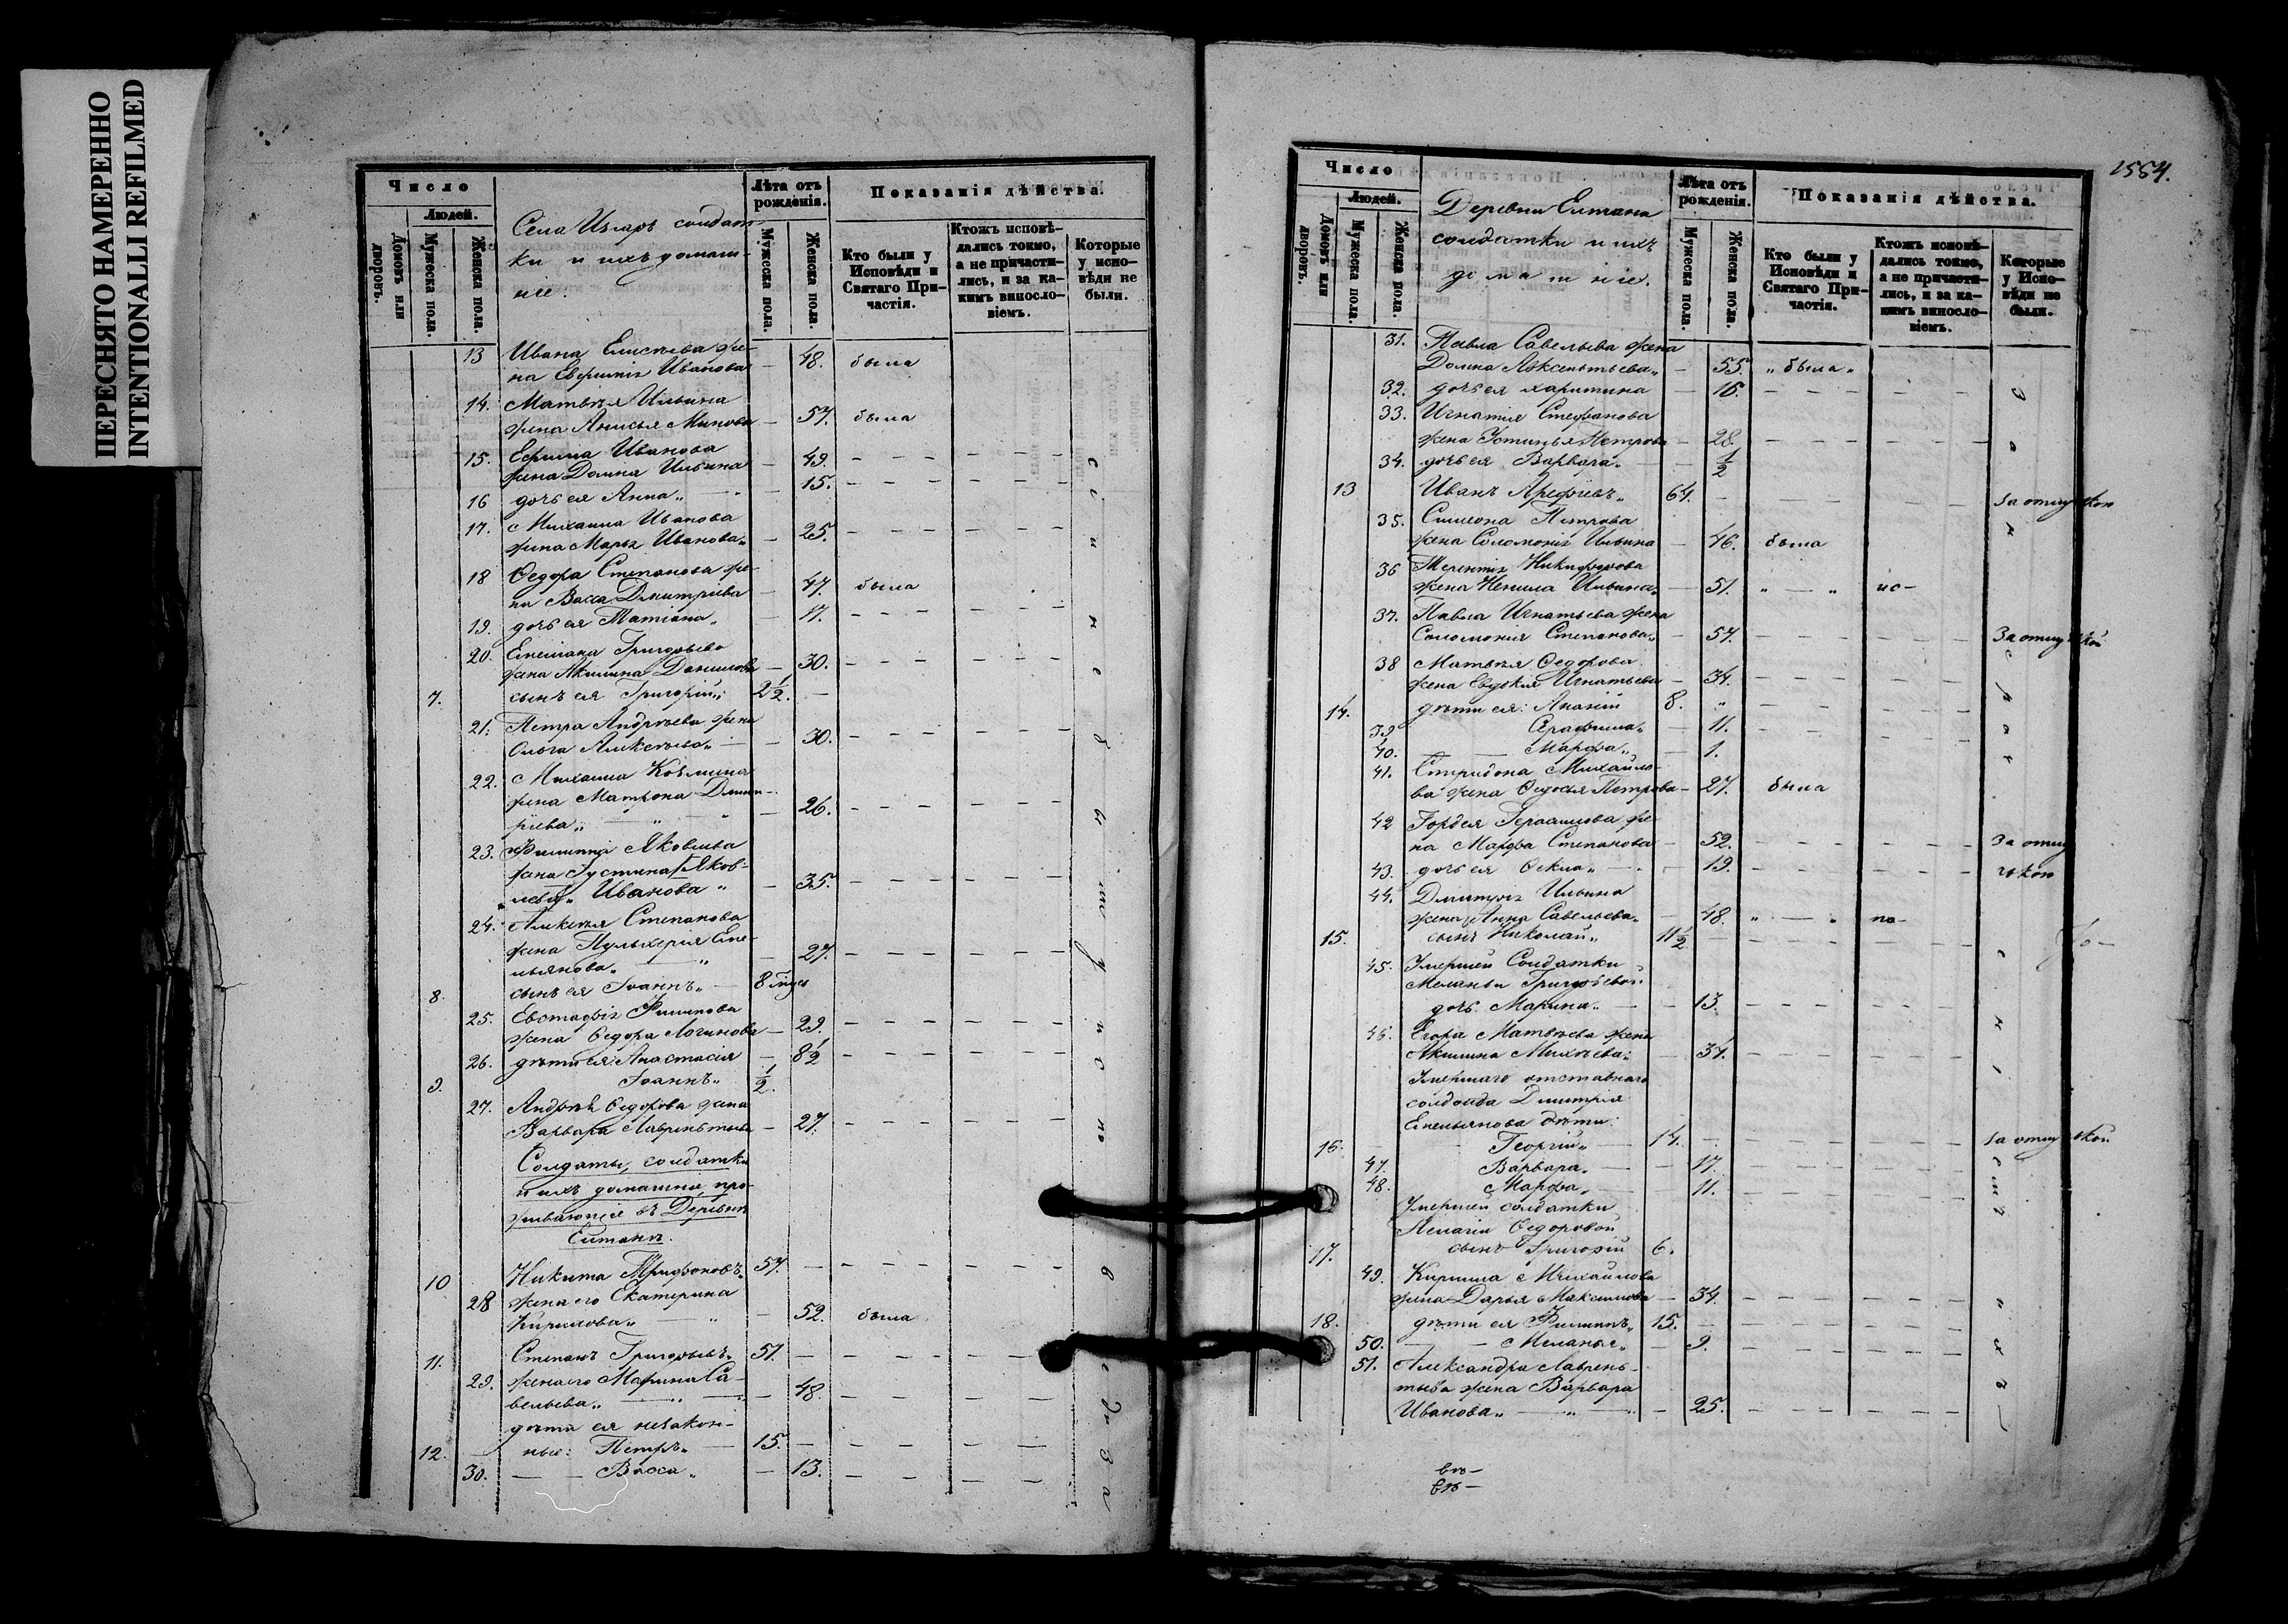 ПЕРЕСНЯТО НАМЕРЕННО
INTENTIONALLI REFILMED
Число
Людей.
Домовъ или дворовъ.
Мужеска пола.
Женска пола.
Села солдат-
ки и ихъ домаш-
ніе.
Лѣта отъ рожденія.
Мужеска пола.
Женска пола.
Показанія дѣйства.
Кто были у Исповѣди и Святаго При-частія.
Ктожъ исповѣ-дались токмо, а не причасти-лись, и за ка-кимъ винослo-віемъ.
Которые у испо-вѣди не были.
13 Ивана Елисѣева же-
на Евфимія Иванова — 48. была
14. Матвѣя Ильина
жена Анисья — 57. была
15. Ефима Иванова
жена Домна Ильина — 49. — — — — — —
16 дочь ея Анна „ — 15. — — — — — —
17. Михаила Иванова
жена Марья Иванова „ — 25. — — — — — —
18 Ѳедора Степанова же-
на Васса Дмитріева — 47. была
19. дочь ея Татіана „ — 17. — — — — — —
20. Григорьева
жена Акилина Данилова — 30. — — — — — —
7. сынъ ея Григорій „ 2 1/2. —
21. Петра Андрѣева жена
Ольга Алексѣева „ — 30. — — — — — —
22. Михаила Козмина
жена Матрона Дмит-
ріева „ — 26. — — — — — —
23. Филиппа Яковлева
жена Іустина Яков-
лева „ Иванова „ — 35. — — — — — —
24. Алексѣя Степанова
жена Пульхерія Еме-
льянова „ — 27. — — — — — —
8. сынъ ея Іоаннъ „ — 8
25. Филипова
жена Ѳедора Логинова — 29. — — — — — —
26. дѣти ея: Анастасія — 8 1/2 — — — — — —
9. Іоаннъ „ 1/2.
27. Андрѣя Ѳедорова жена
Варвара Лаврентьева — 27. — — — — — —
Солдаты, солдатки
и ихъ домашніе, про-
живающіе въ Деревнѣ
10 Никита Трифоновъ „ 57. — — — — — —
28 жена его Екатерина
Кирилова „ — 52. была
11. Степанъ Григорьевъ „ 51. — — — — — —
29. жена его Марина Са-
вельева „ — 48. — — — — —
дѣти ея незакон-
12. ные: Петръ „ — 15. — — — — —
30. — — Васса „ — 13. — — — — —
1554.
Число
Людей.
Домовъ или дворовъ.
Мужеска пола.
Женска пола.
Деревни Елтана
солдатки и ихъ
домашніе.
Лѣта отъ рожденія.
Мужеска пола.
Женска пола.
Показанія дѣйства.
Кто были у Исповѣди и Святаго При-частія.
Ктожъ исповѣ-дались токмо, а не причасти-лись, и за ка-кимъ винослo-віемъ.
Которые у Испо-вѣди не были.
31. Павла Савельева жена
Домна Авксентьева „ — 55. „ была „
32. дочь ея Харитина — 16. — — — — —
33. Игнатія Стефанова
жена Устинья Петрова — 28. — — — — —
34. дочь ея Варвара „ — 1/2
13 Иванъ Арефіевъ „ 64. — — — — — За отлучкою
35. Симеона Петрова
жена Соломонія Ильина — 46. была
36 Терентія Никифорова
жена Ильина „ — 51. „ — „ ис-
37. Павла Игнатьева жена
Соломонія Степанова „ — 54. — — — — — За отлучкой
38 Матвѣя Ѳедорова
жена Евдокія Игнатьева — 34. — — — — —
14. дѣти ея: Ананій 8. „ — — — — —
39 Серафима „ — 11. — — — — —
40. — Марфа „ — 1.
41. Спиридона Михайло-
ва жена Ѳедосья Петрова — 27. была
42 Гордея Герасимова же-
на Марфа Степанова — 52. — — — — — За отлу
43. дочь ея Ѳекла „ — 19. — — — — — чкою
44. Дмитрія Ильина
жена Анна Савельева „ — 48. „ — „ по-
15. сынъ Николай „ 11 1/2 — — — — —
45. Умершей Солдатки
Меланьи Григорьевой
дочь Марина „ — 13. — — — — —
46. Егора Матвѣева жена
Акилина Михѣева „ — 37. — — — — —
Умершаго отставнаго
солдата Димитрія
Емельянова дѣти:
16. — Георгій „ — 14. — — — — — За отлучкой
47. Варвара „ — 17. — — — — —
48. Марфа „ — 11. — — — — —
Умершей солдатки
Пелагіи Ѳедоровой
17. сынъ Григорій 6.
49. Кирилла Михайлова
жена Дарья Максимова — 34. — — — — —
18. дѣти ея Филиппъ „ 15. — — — — —
50. — — Меланья „ — 9. — — — — —
51. Александра Лаврень-
тьева жена Варвара
Иванова „ — 25. — — — — —